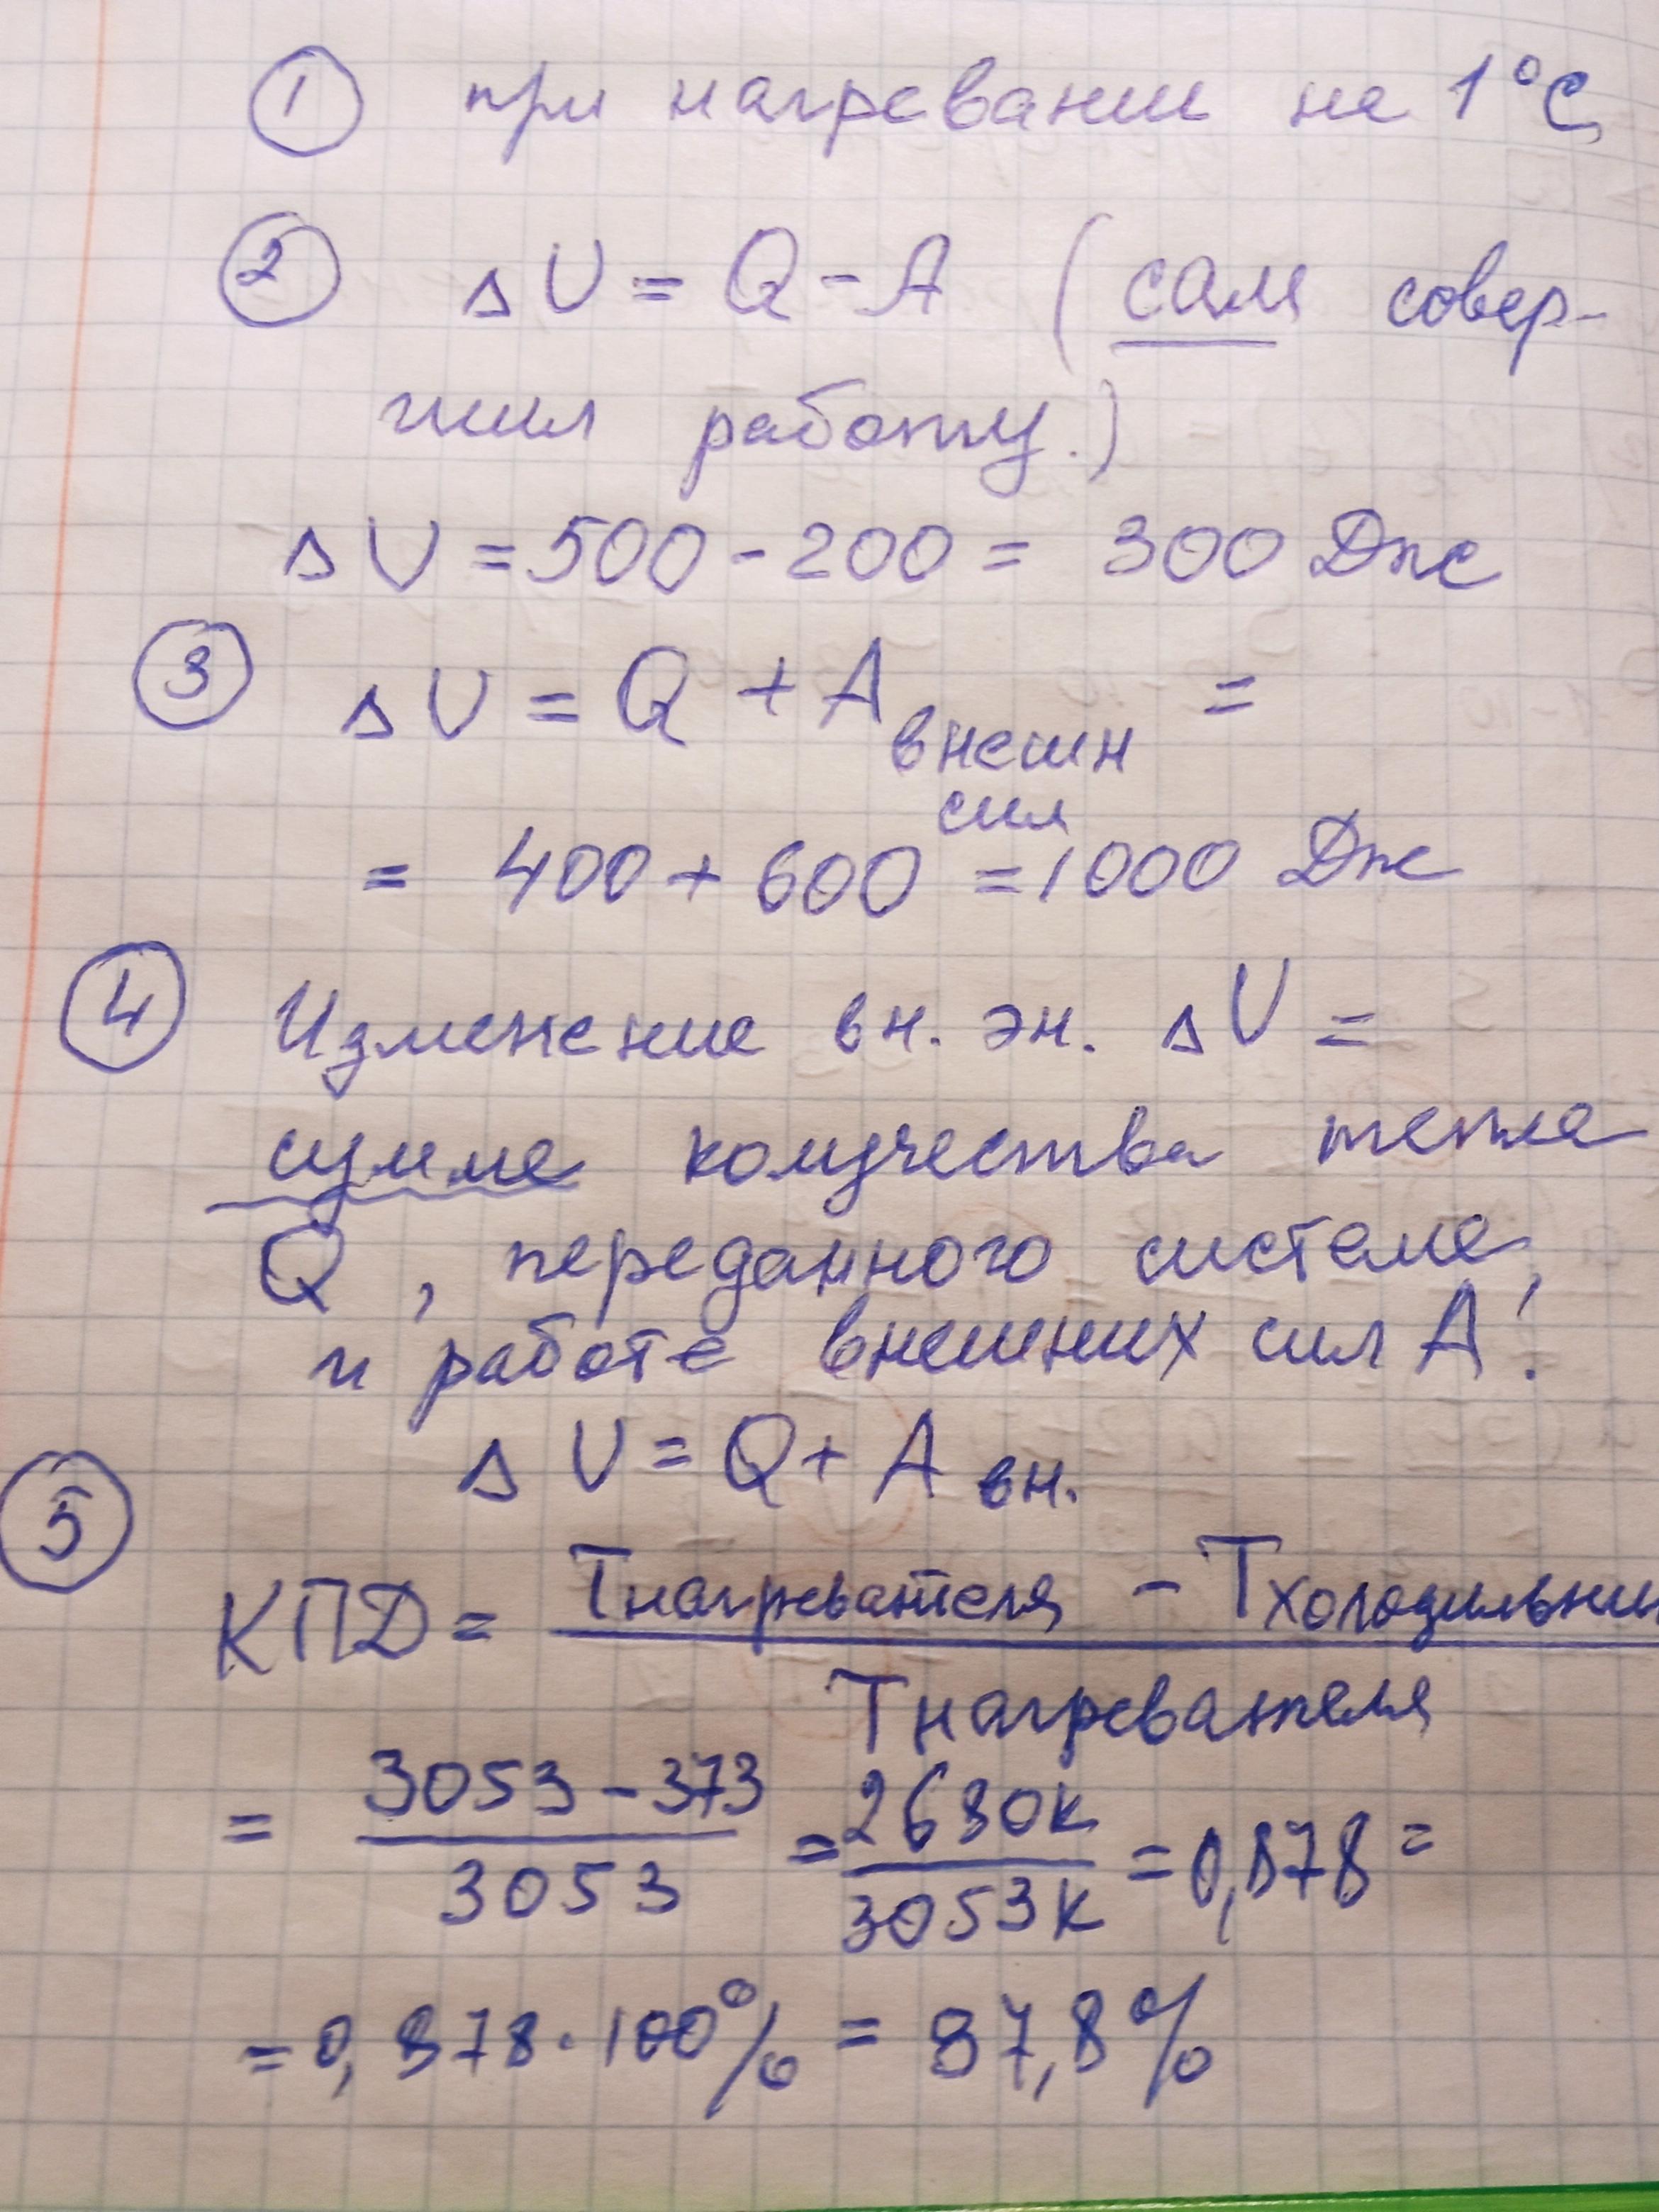 ① при нагревании на 1°C
② ΔU = Q - A (сам совер-
шил работу.)
ΔU = 500 - 200 = 300 Дж
③ ΔU = Q + A внешн сил =
= 400 + 600 = 1000 Дж
④ Изменение вн. эн. ΔU =
сумме количества тепла
Q, переданного системе,
и работе внешних сил A!
ΔU = Q + A вн.
⑤
КПД = Tнагревателя - Tхолодильник
Tнагревателя
= 3053 - 373 / 3053 = 2680К / 3053К = 0,878 =
= 0,878 · 100% = 87,8%